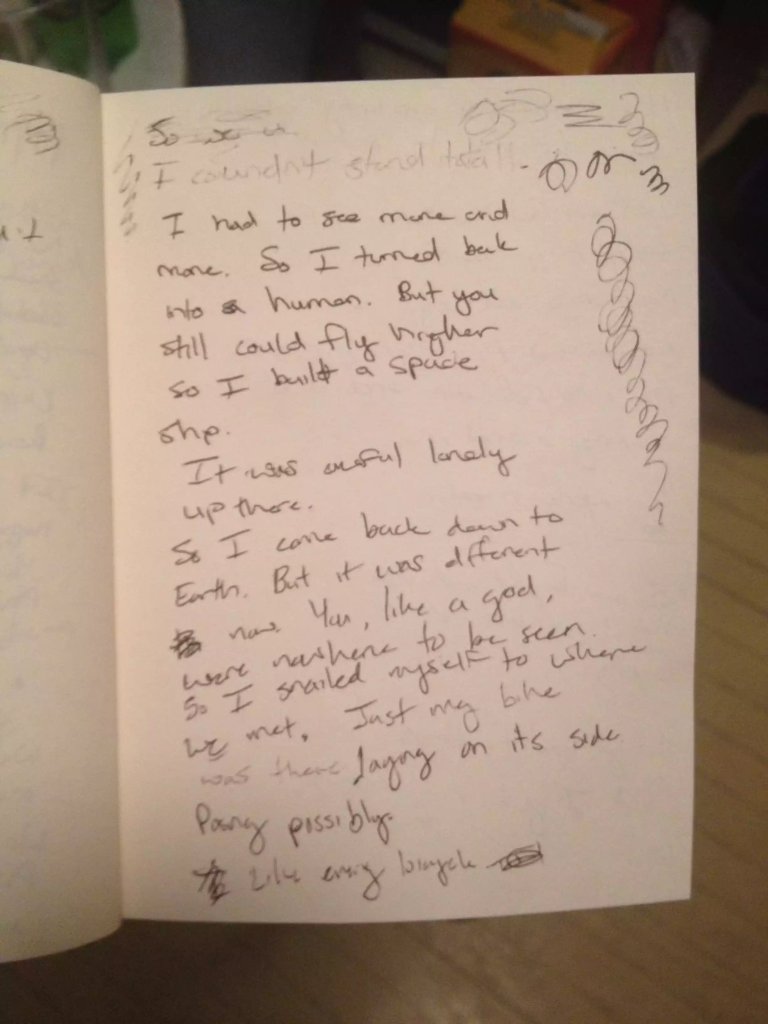 So we w
I couldn't stand still.
I had to see more and
more. So I turned back
into a human. But you
still could fly higher
so I built a space
ship.
It was awful lonely
up there.
So I came back down to
Earth. But it was different
now. You, like a god,
were nowhere to be seen.
So I snailed myself to where
we met. Just my bike
was there laying on its side
possibly.
Like every bicycle